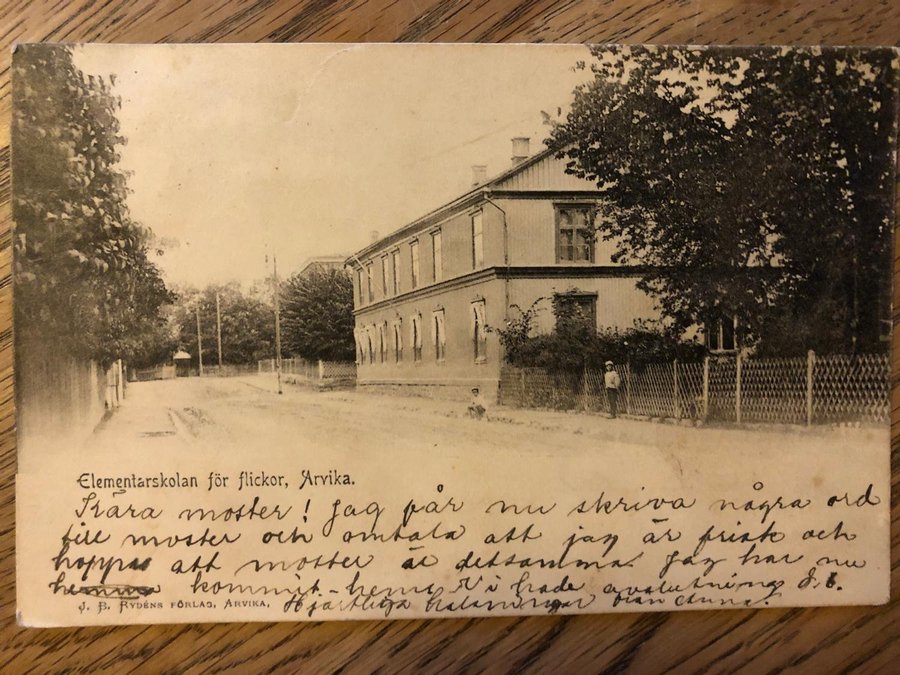 Elementarskolan för flickor, Arvika.
Kära moster! Jag får nu skriva några ord
till moster och omtala att jag är frisk och
hoppas att moster är detsamma. Jag har nu
hemma kommit hem. Vi hade avslutning d. 6.
J. B. RYDÉNS FÖRLAG, ARVIKA.
Hjärtliga hälsningar från Anna.